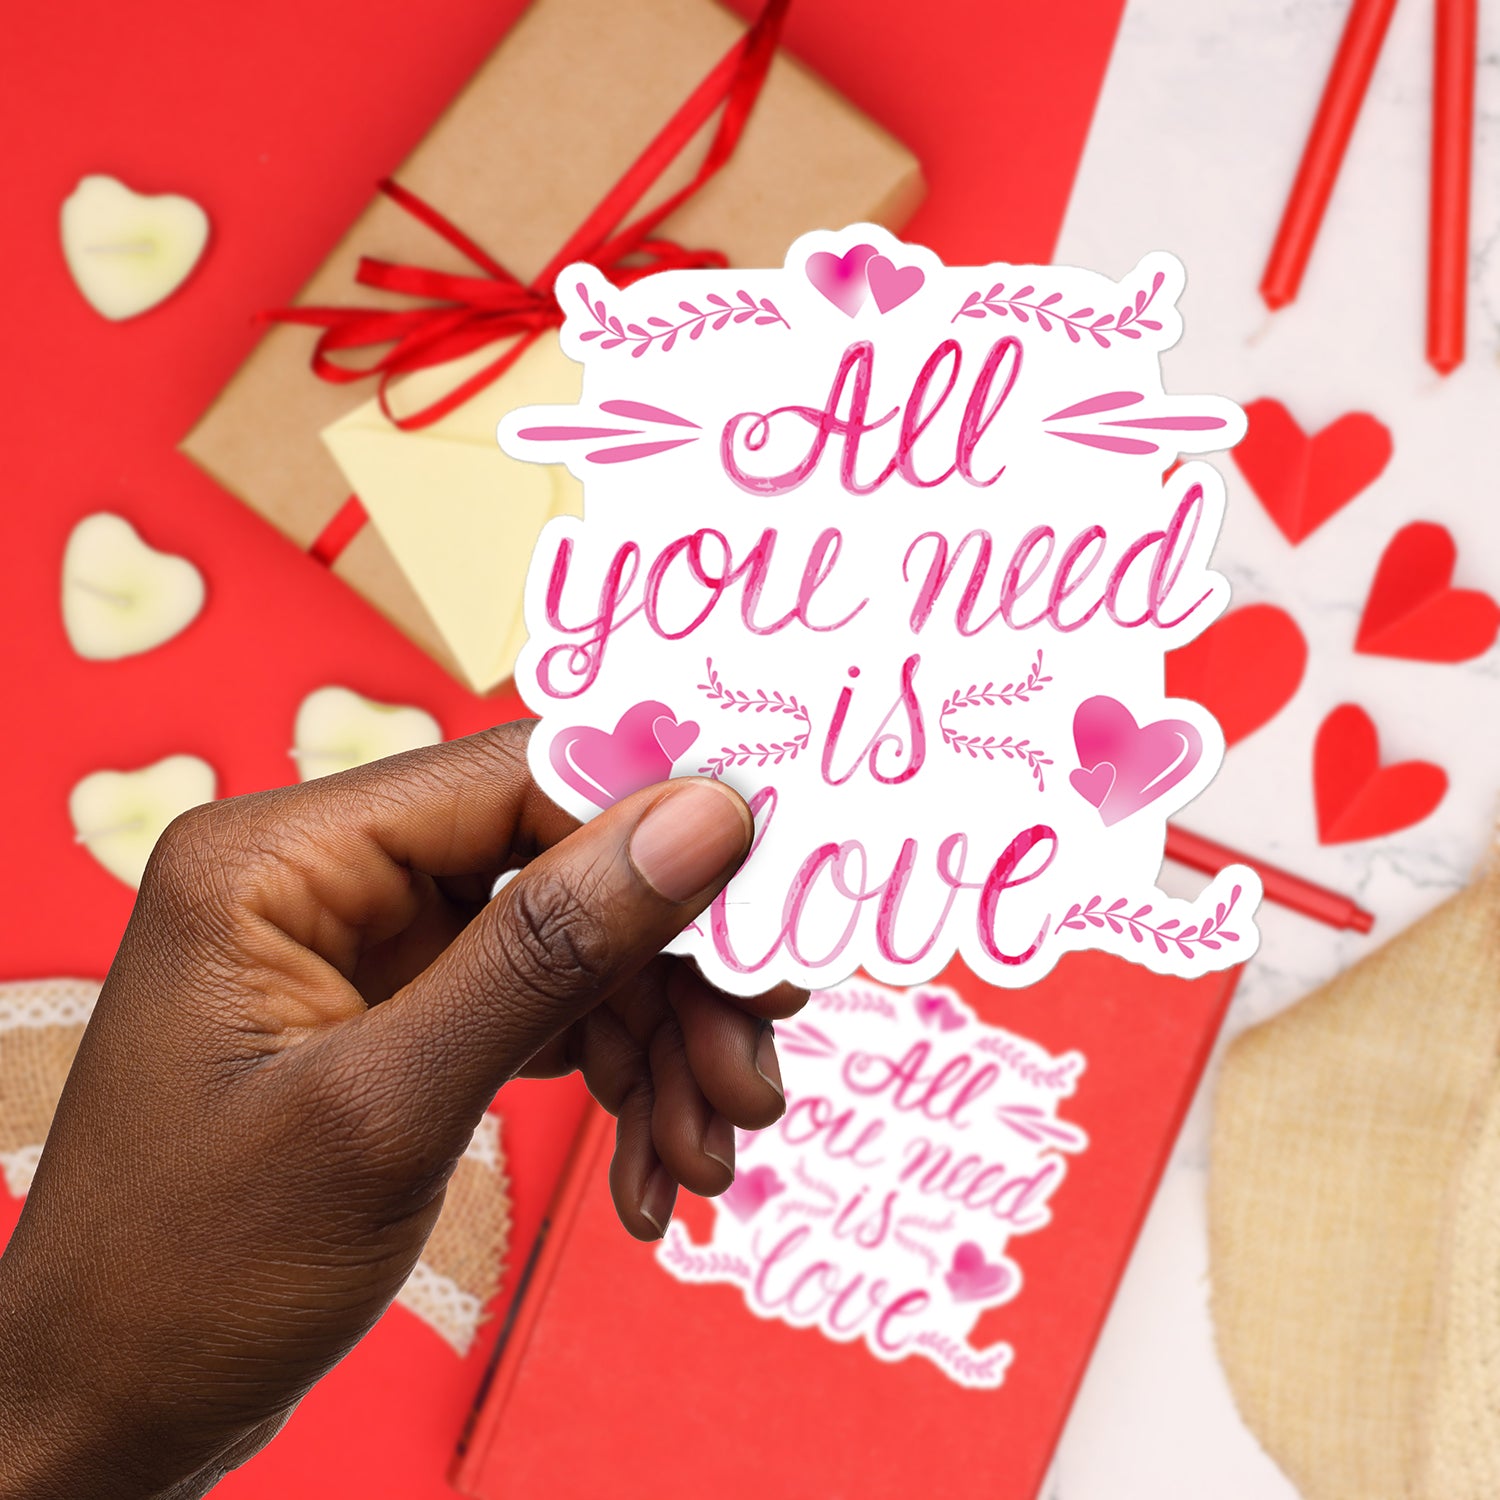 All
you need
is
love
All
you need
is
love